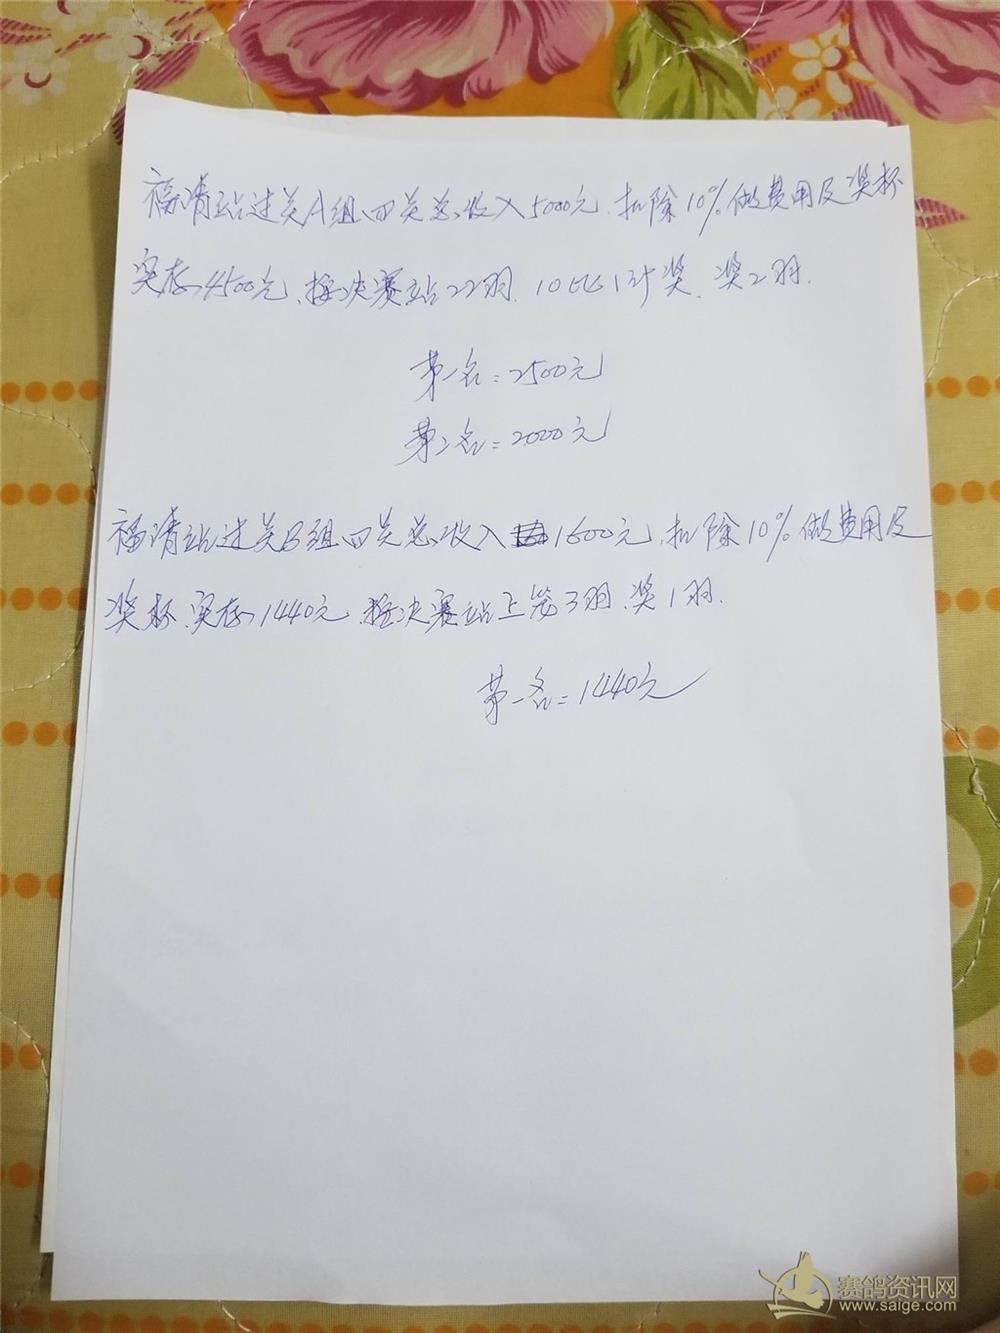 福清站过关A组、四关总收入5000元、扣除10%做费用及奖杯
实存4500元、按决赛站22羽、10比1计奖、奖2羽.
第一名=2500元
第二名=2000元
福清站过关B组四关总收入1600元、扣除10%做费用及
奖杯、实存1440元、按决赛站上笼3羽、奖1羽.
第一名=1440元
赛鸽资讯网
www.saige.com